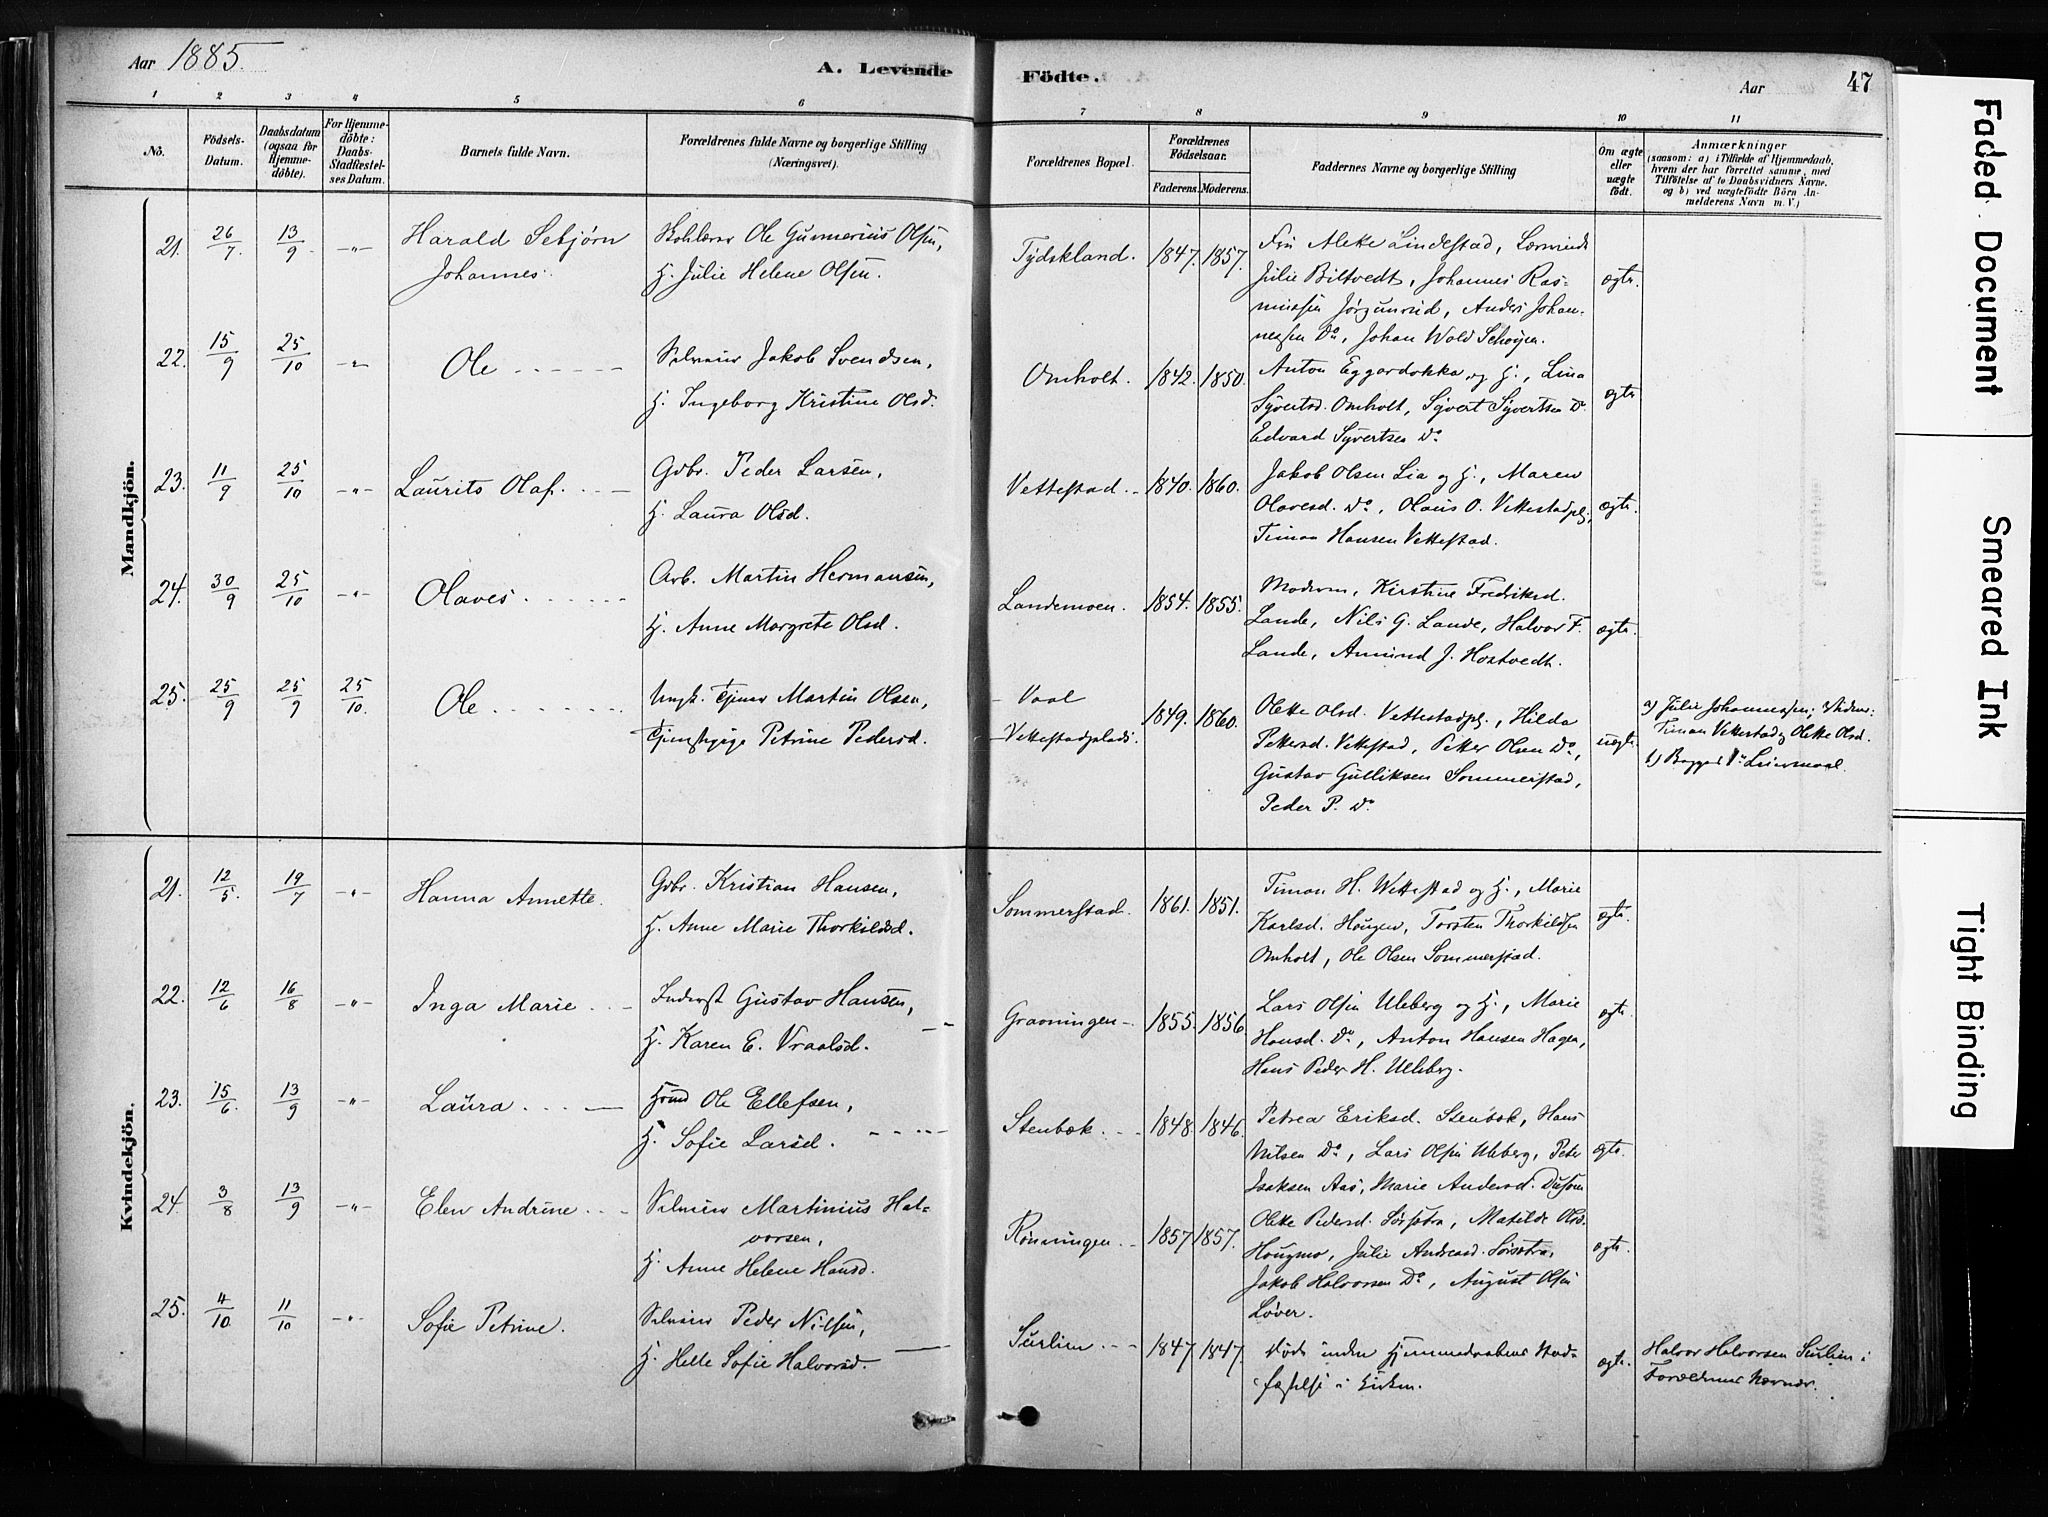 Aar 1885.
A. Levende Födte.
Aar
47
1 2 3 4 5 6 7 8 9 10 11
No.
Födsels-Datum.
Daabsdatum (ogsaa for Hjemme-döbte).
For Hjemme-döbte: Daabs-Stadfæstel-ses Datum.
Barnets fulde Navn.
Forældrenes fulde Navne og borgerlige Stilling (Næringsvei).
Forældrenes Bopæl.
Forældrenes Födselsaar.
Faderens. Moderens.
Faddernes Navne og borgerlige Stilling
Om ægte eller uægte födt.
Anmærkninger
(saasom: a) i Tilfælde af Hjemmedaab,
hvem der har forrettet samme, med
Tilföielse af to Daabsvidners Navne.
og b) ved uægtefödte Börn An-
melderens Navn m. V.)
Mandkjön.
21. 26/7 13/9 -"- Harald Sebjørn
Johannes.
Ole Gunnerius Olsen,
H. Julie Helene Olsen.
Tydskland. 1847. 1857.
Lindestad,
Julie Biltvedt, Johannes Ras-
mussen Jørgensrud, Anders Johan-
nessen Do, Johan Wold
ægte.
22. 15/9 25/10 -"- Ole
Jakob Svendsen,
H. Ingeborg Kristine Olsd.
Omholt. 1842. 1850.
Anton Eggardokka og H., Lina
Syvertsd. Omholt, Syvert Syvertsen Do
Edvard Syvertsen Do
ægte
23. 11/9 25/10 -"- Laurits Olaf.
Gdbr. Peder Larsen,
H. Laura Olsd.
Vettestad. 1840. 1860.
Jakob Olsen Lia og H., Maren
Olavesd. Do, Olaus O. Vettestadpl.,
Timan Hansen Vettestad.
ægte.
24. 30/9 25/10 -"- Olaves.
Arb. Martin Hermansen,
H. Anne Margrete Olsd.
Landemoen. 1854. 1855.
Moderen, Kirstine Fredriksd.
Lande, Nils G. Lande, Halvor F.
Lande, Amund J. Hostvedt.
ægte.
25. 25/9 25/9 25/10. Ole
Ungk. Tjener Martin Olsen,
Petrine Pedersd.
Vaal
Vettestadplads. 1849. 1860.
Olette Olsd. Vettestadpl., Hilda
Pettersd. Vettestad, Petter Olsen Do,
Gustav Gulliksen Sommerstad,
Peder P. Do
uægte.
a) Julie Johannessen; Vidner:
Timan Vettestad og Olette Olsd.
b)
Kvindekjön.
21. 12/5. 19/7 -"- Hanna Annette.
Gdbr. Kristian Hansen,
H. Anne Marie Thorkildsd.
Sommerstad. 1861. 1851.
Timan H. Vettestad og H., Marie
Karlsd. Hougen, Torsten Thorkildsen
Omholt, Ole Olsen Sommerstad.
ægte.
22. 12/6 16/8 -"- Inga Marie
Inderst Gustav Hansen,
H. Karen E. Vraalsd.
Graaningen. 1855. 1856.
Lars Olsen Uleberg og H., Marie
Hansd. Do, Anton Hansen Hagen,
Hans Peder H. Uleberg.
ægte.
23. 15/6. 13/9 -"- Laura
Ole Ellefsen,
H. Sofie Larsd.
Stenbæk. 1848. 1846.
Petrea Eriksd. Stenbæk, Hans
Nilsen Do, Lars Olsen Uleberg, Peter
Isaksen Aas, Marie Andersd.
ægte.
24. 3/8 13/9 -"- Elen Andrine
Martinius Hal-
vorsen,
H. Anne Helene Hansd.
Rønningen. 1857 1857.
Olette Pedersd. Sørsætra, Matilde Olsd.
Hougmo, Julie Andreasd. Sørsætra,
Jakob Halvorsen Do, August Olsen
Løver.
ægte.
25. 4/10. 11/10 -"- Sofie Petrine.
Peder Nilsen,
H. Helle Sofie Halvorsd.
Surlien 1847 1847.
Døde inden Hjemmedaabens Stad-
fæstelse i Kirken.
ægte.
Halvor Halvorsen Surlien i
Forældrenes Nærvær.
Faded Document
Smeared Ink
Tight Binding